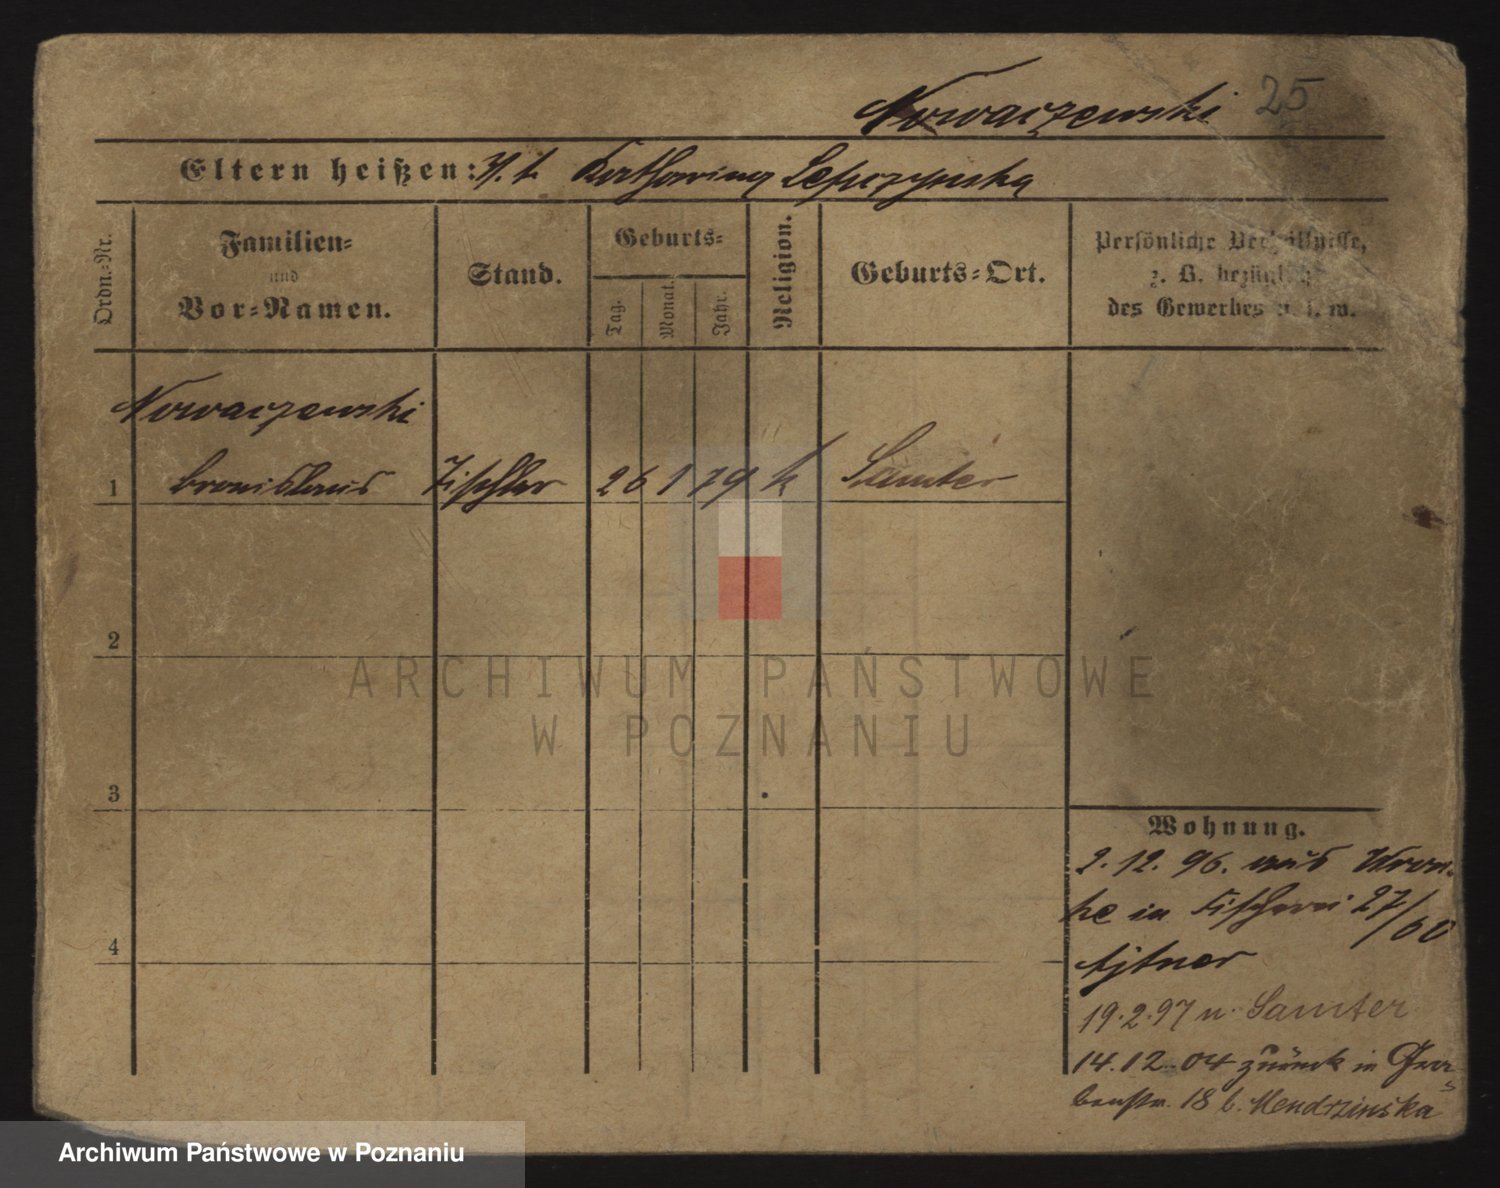 Nowaczewski 25
Eltern heißen: Katharina Lepczynska
Ordn.-Nr.
Familien-
und
Vor-Namen.
Stand.
Geburts-
Tag.
Monat.
Jahr.
Religion.
Geburts-Ort.
Persönliche Verhältnisse,
z. B. bezüglich
des Gewerbes u. s. w.
Nowaczewski
1 Bronislaus Tischler 26 1 79 k Samter
2
3
4
Wohnung.
2.12.96. aus Wron-
ke in Fischerei 27/60
19.2.97 n. Samter
14.12.04 zurück in Gra-
benstr. 18 b. Mendrzinska
ARCHIWUM PAŃSTWOWE
W POZNANIU
Archiwum Państwowe w Poznaniu